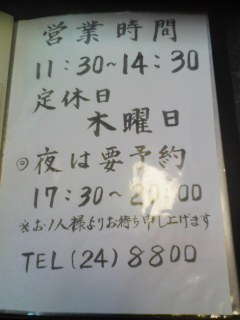 営業時間
11:30~14:30
定休日
木曜日
◎夜は要予約
17:30~20:00
※お1人様よりお持ち申し上げます
TEL(24)8800